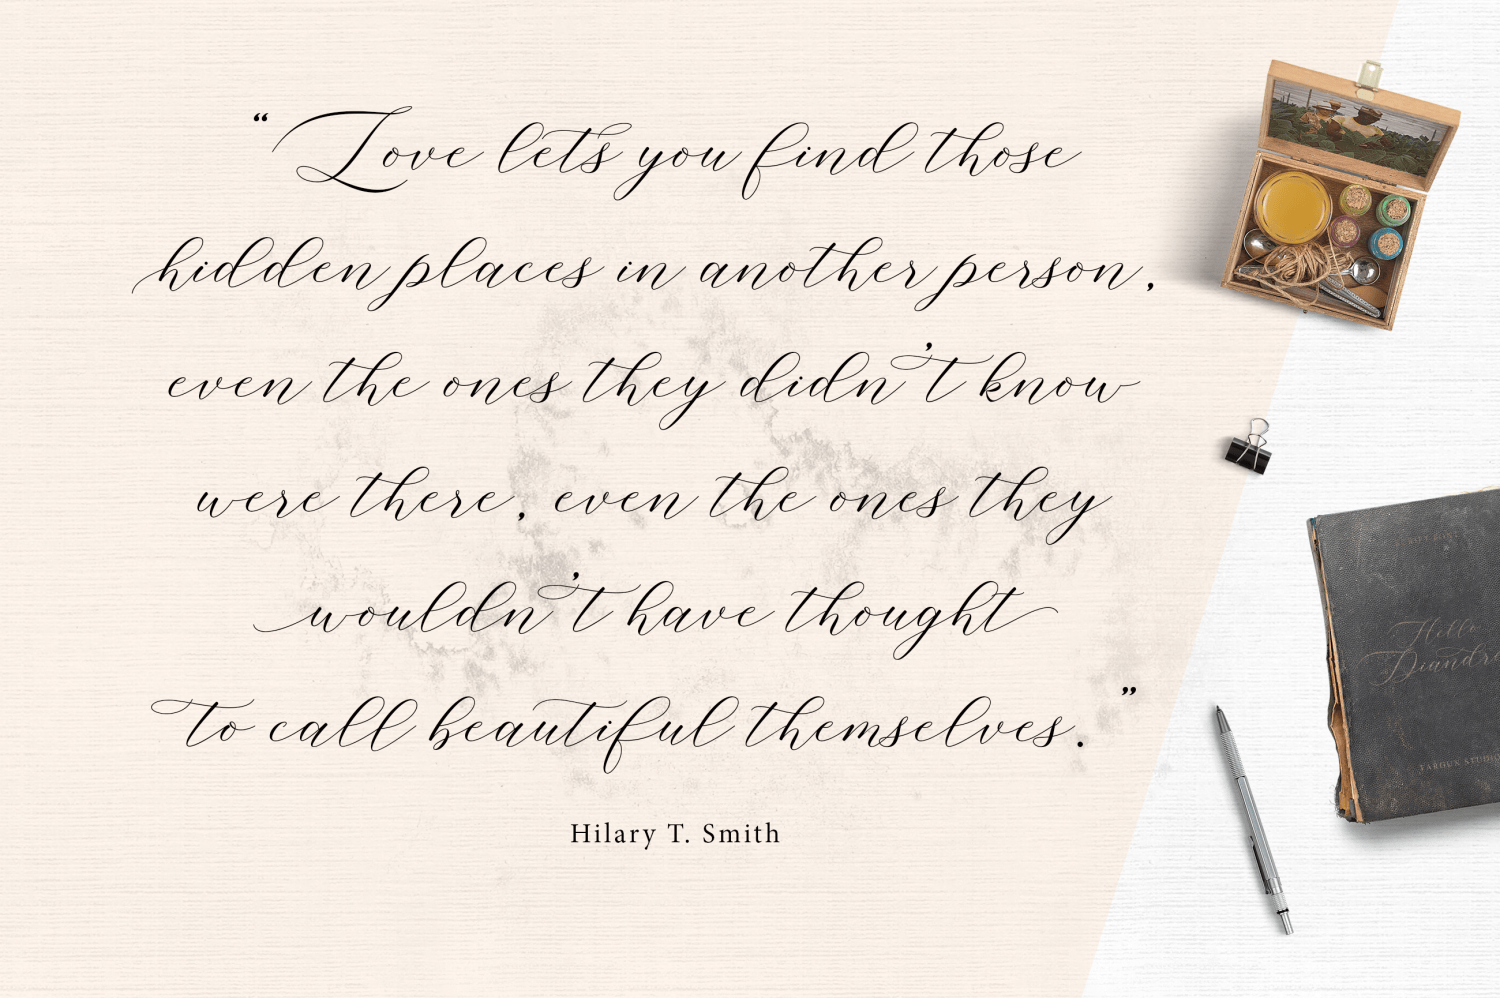 “Love lets you find those
hidden places in another person,
even the ones they didn’t know
were there, even the ones they
wouldn’t have thought
to call beautiful themselves.”
Hilary T. Smith
Hello